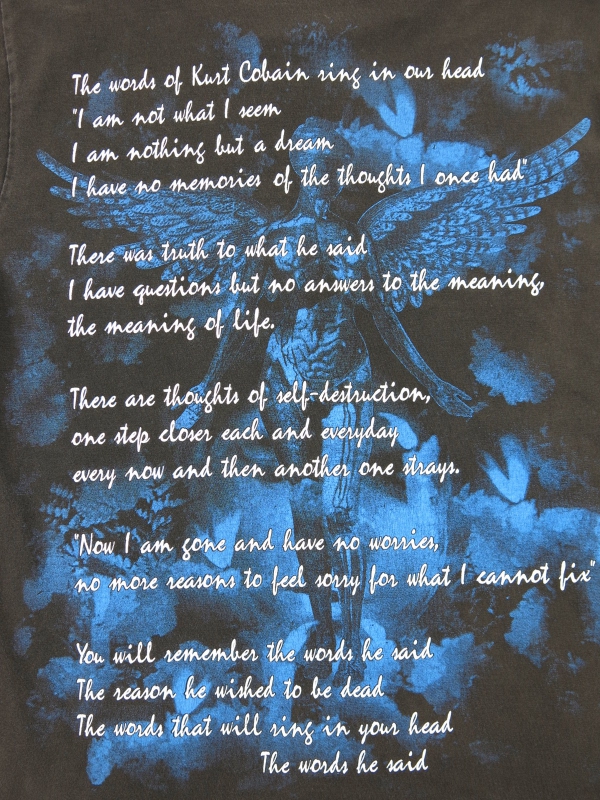 The words of Kurt Cobain ring in our head
"I am not what I seem
I am nothing but a dream
I have no memories of the thoughts I once had"
There was truth to what he said
I have questions but no answers to the meaning,
the meaning of life.
There are thoughts of self-destruction,
one step closer each and everyday
every now and then another one strays.
"Now I am gone and have no worries,
no more reasons to feel sorry for what I cannot fix"
You will remember the words he said
The reason he wished to be dead
The words that will ring in your head
The words he said